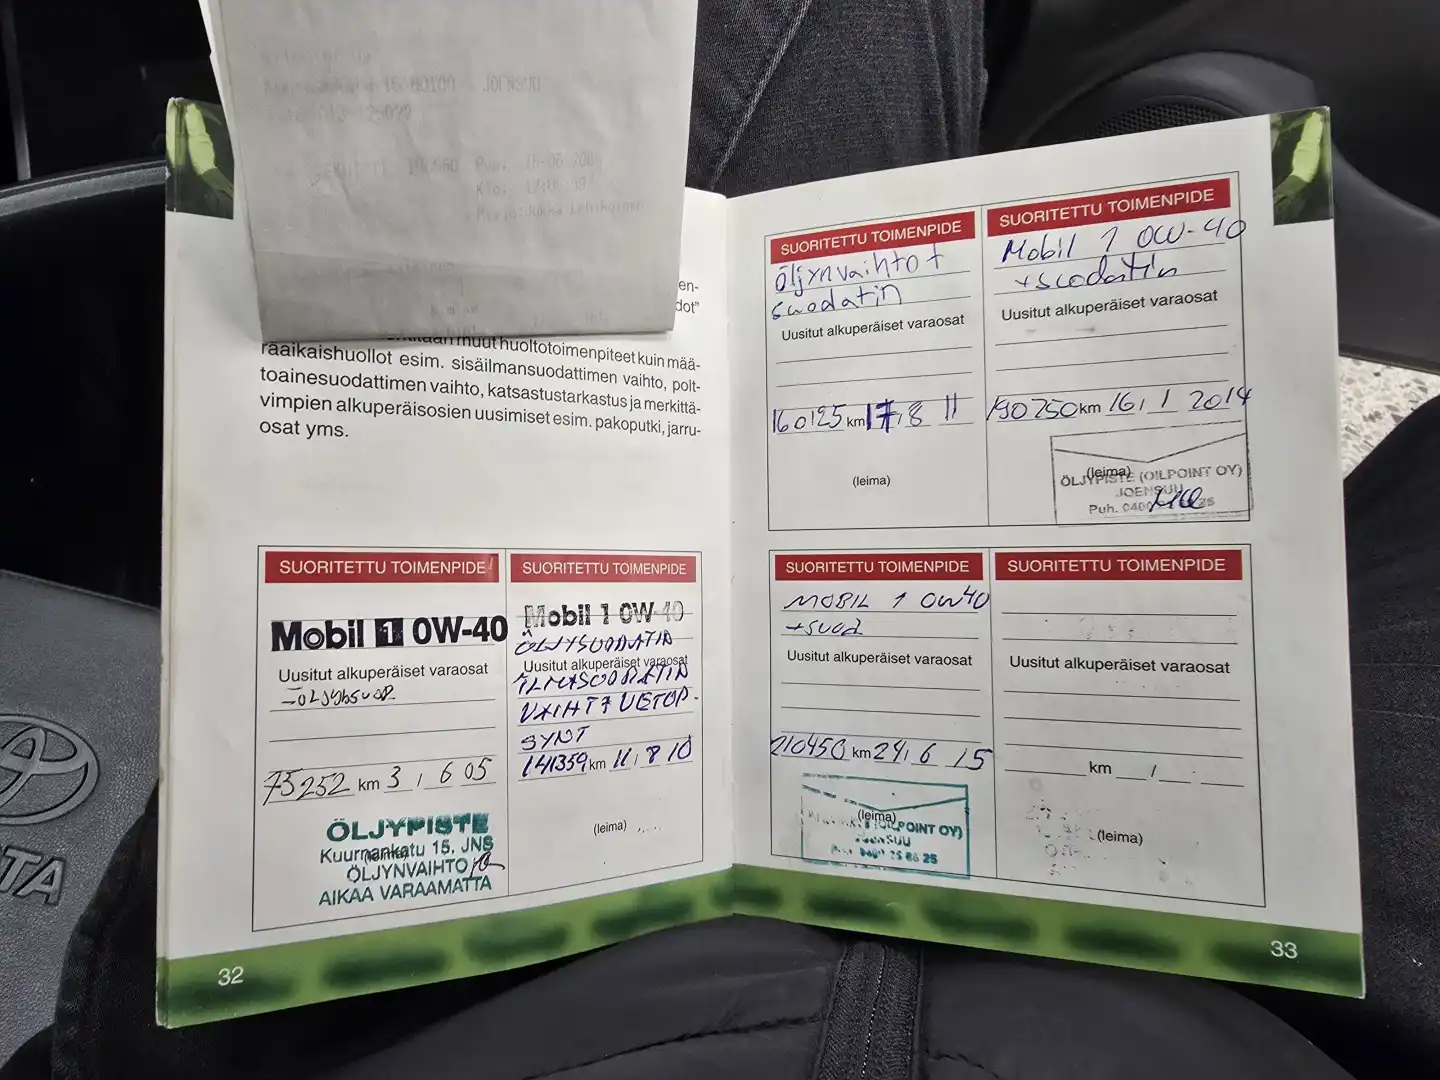 JOENSUU
Klo:
en-
dot"
muut huoltotoimenpiteet kuin mää-
räaikaishuollot esim. sisäilmansuodattimen vaihto, polt-
toainesuodattimen vaihto, katsastustarkastus ja merkittä-
vimpien alkuperäisosien uusimiset esim. pakoputki, jarru-
osat yms.
SUORITETTU TOIMENPIDE
Mobil 1 0W-40
Uusitut alkuperäiset varaosat
75252 km 3 / 6 05
(leima)
ÖLJYPISTE
Kuurnankatu 15, JNS
ÖLJYNVAIHTO
AIKAA VARAAMATTA
SUORITETTU TOIMENPIDE
Mobil 1 0W-40
ÖLJYSUODATIN
Uusitut alkuperäiset varaosat
ILMASUODATIN
SYNT
141359 km 11 / 8 10
(leima)
32
SUORITETTU TOIMENPIDE
öljynvaihto +
suodatin
Uusitut alkuperäiset varaosat
160125 km 17 / 8 11
(leima)
SUORITETTU TOIMENPIDE
Mobil 1 0W-40
+ suodatin
Uusitut alkuperäiset varaosat
190250 km 16 / 1 2014
(leima)
ÖLJYPISTE (OILPOINT OY)
JOENSUU
Puh.
SUORITETTU TOIMENPIDE
MOBIL 1 0W40
+ suod
Uusitut alkuperäiset varaosat
210450 km 24 / 6 15
(leima)
(OILPOINT OY)
JOENSUU
SUORITETTU TOIMENPIDE
Uusitut alkuperäiset varaosat
km /
(leima)
33